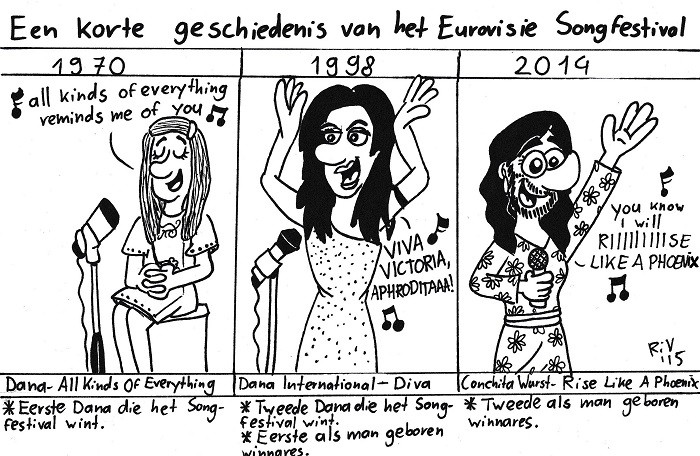 Een korte geschiedenis van het Eurovisie Songfestival
1970
all kinds of everything
reminds me of you
Dana- All Kinds Of Everything
* Eerste Dana die het Song-
festival wint.
1998
VIVA
VICTORIA,
APHRODITAAA!
Dana International- Diva
* Tweede Dana die het Song-
festival wint.
* Eerste als man geboren
winnares.
2014
you know
I will
RIIIIIIIIISE
LIKE A PHOENIX
RiV
'15
Conchita Wurst- Rise Like A Phoenix
* Tweede als man geboren
winnares.